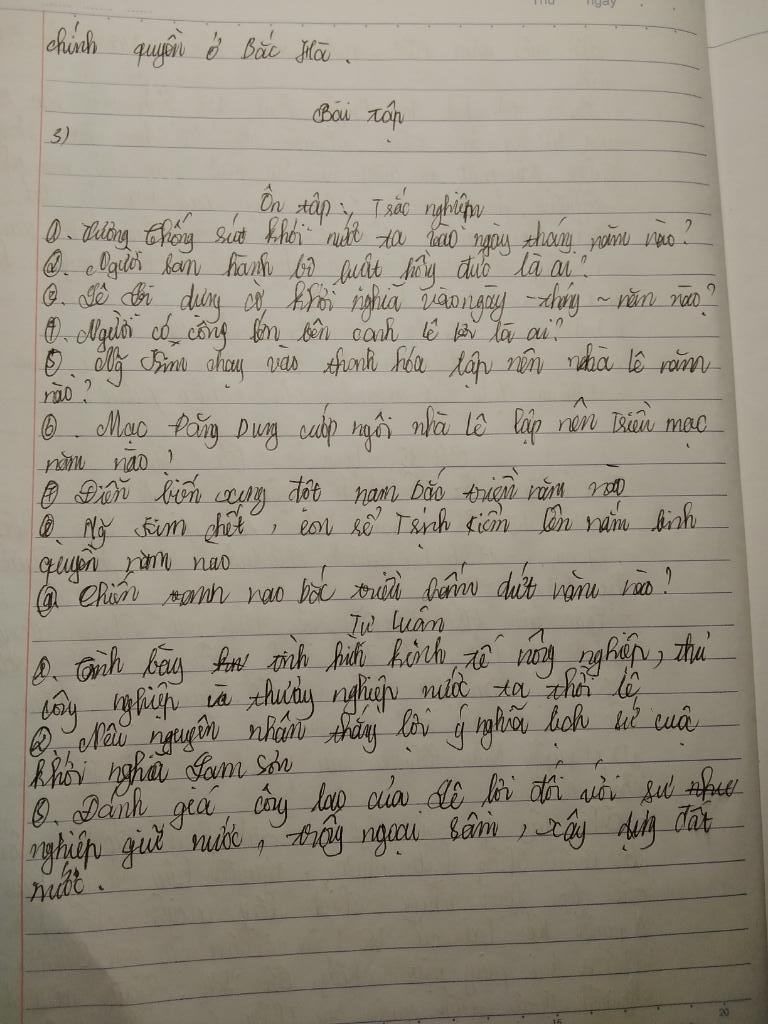 chính quyền ở Bắc Hà.
Bài tập
3)
Ôn tập: Trắc nghiệm
①. Vương Thống rút khỏi nước ta vào ngày tháng năm nào?
②. Người ban hành bộ luật hồng đức là ai?
③. Lê lợi dựng cờ khởi nghĩa vào ngày - tháng ~ năm nào?
④. Người có công lớn bên cạnh lê lợi là ai?
⑤. Ng̃ Kim chạy vào thanh hóa lập nên nhà lê năm
nào?
⑥. Mạc Đăng Dung cướp ngôi nhà Lê lập nên Triều mạc
năm nào?
⑦ Diễn biến xung đột nam bắc triều năm nào
⑧. Ng̃ Kim chết, con rể Trịnh Kiểm lên nắm binh
quyền năm nao
⑨. Chiến tranh nao bắc triều chấm dứt năm nào?
Tự luận
①. Trình bày tình hình kinh tế nông nghiệp, thủ
công nghiệp và thương nghiệp nước ta thời lê
②. Nêu nguyên nhân thắng lợi ý nghĩa lịch sử của
khởi nghĩa Lam Sơn
③. Đánh giá công lao của Lê lời đối với sự
nghiệp giữ nước, trống ngoại xâm, xây dựng đất
nước.
20